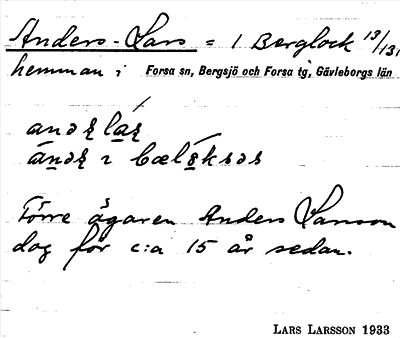 Anders-Lars = 1 Berglock 13/131
hemman i Forsa sn, Bergsjö och Forsa tg, Gävleborgs län
Förre ägaren Anders Larsson
dog för c:a 15 år sedan.
LARS LARSSON 1933